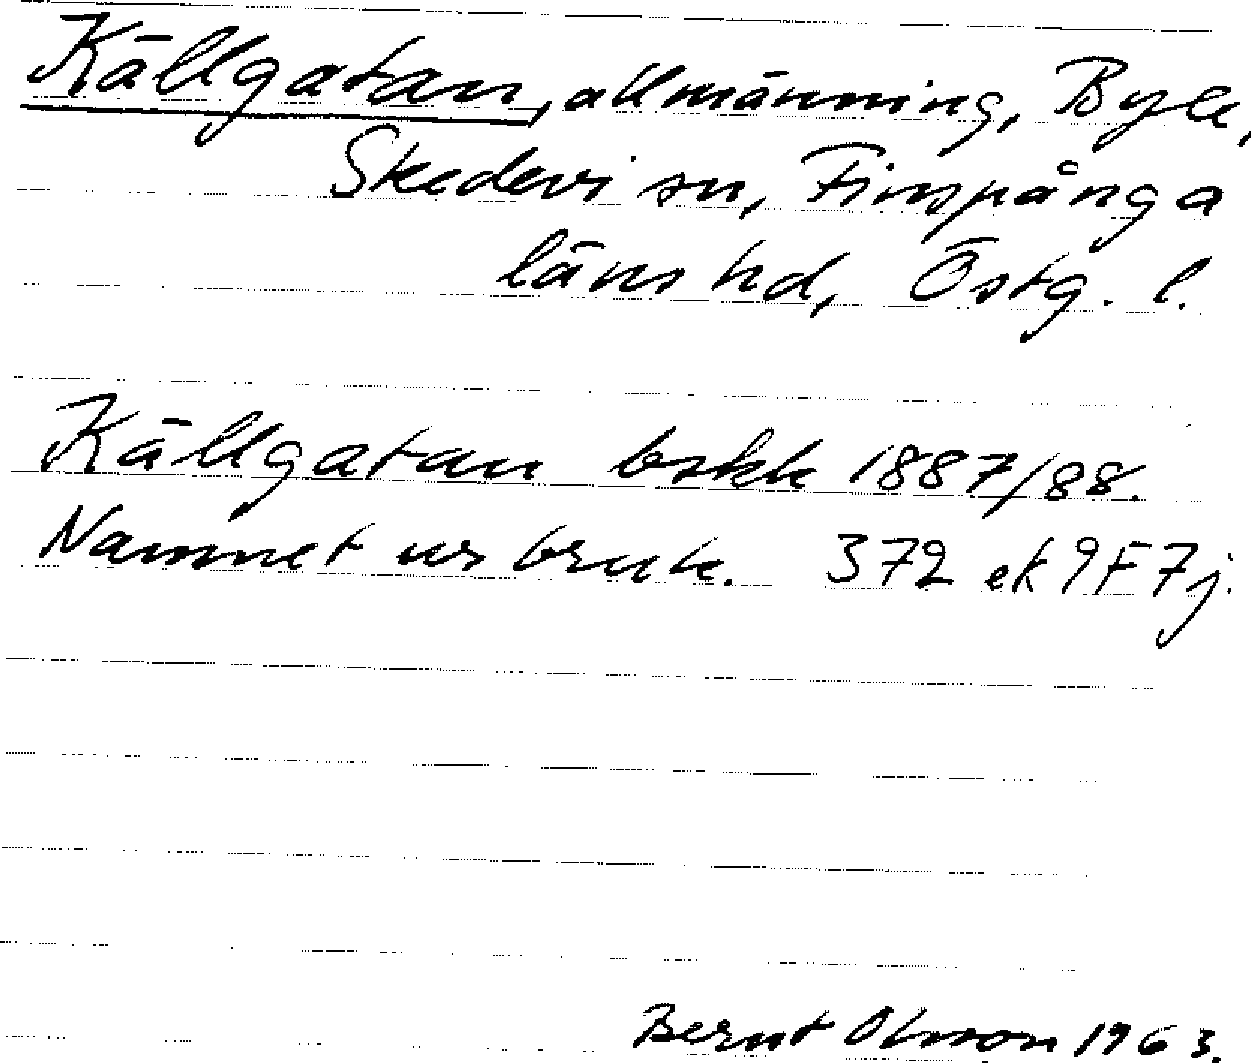 Källgatan, allmänning, Byle,
Skedevi sn, Finspånga
läns hd, Östg. l.
Källgatan bskk 1887/88.
Namnet ur bruk. 372 ek 9F7j.
Bernt Olsson 1963.